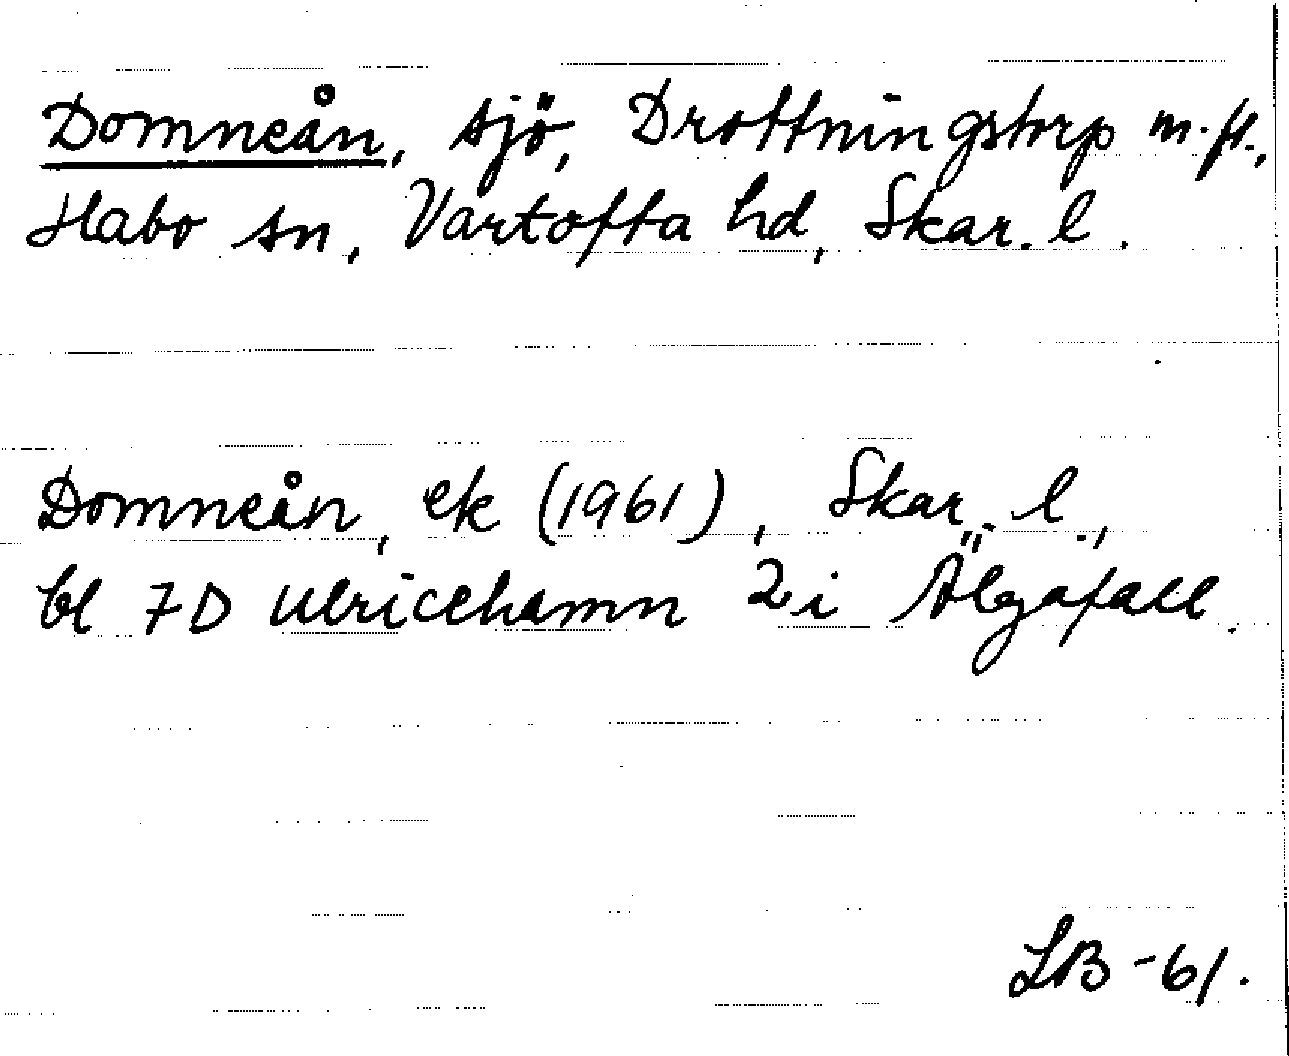 Domneån, sjö, Drottningstorp m.fl.,
Habo sn, Vartofta hd, Skar. l.
Domneån, ek (1961), Skar. l.,
bl 7D Ulricehamn 2i Älgafall.
LB -61.